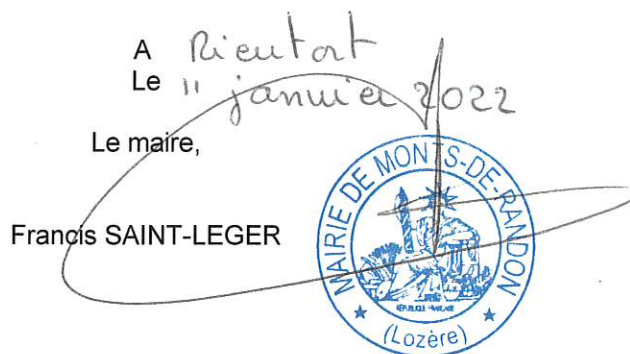 A Rieutort
Le 11 janvier 2022
Le maire,
Francis SAINT-LEGER
MAIRIE DE MONTS-DE-RANDON
RÉPUBLIQUE FRANÇAISE
(Lozère)